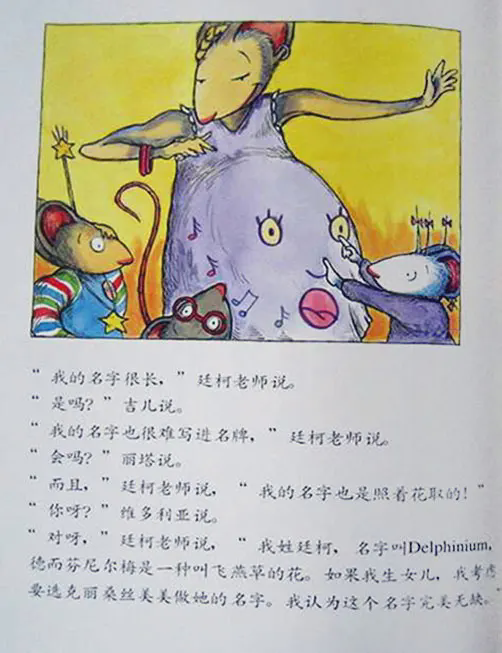 “我的名字很长，”廷柯老师说。
“是吗？”吉儿说。
“我的名字也很难写进名牌，”廷柯老师说。
“会吗？”丽塔说。
“而且，”廷柯老师说，“我的名字也是照着花取的！”
“你呀？”维多利亚说。
“对呀，”廷柯老师说，“我姓廷柯，名字叫Delphinium，
德而芬尼尔梅是一种叫飞燕草的花。如果我生女儿，我考虑
要选克丽桑丝美美做她的名字。我认为这个名字完美无缺。